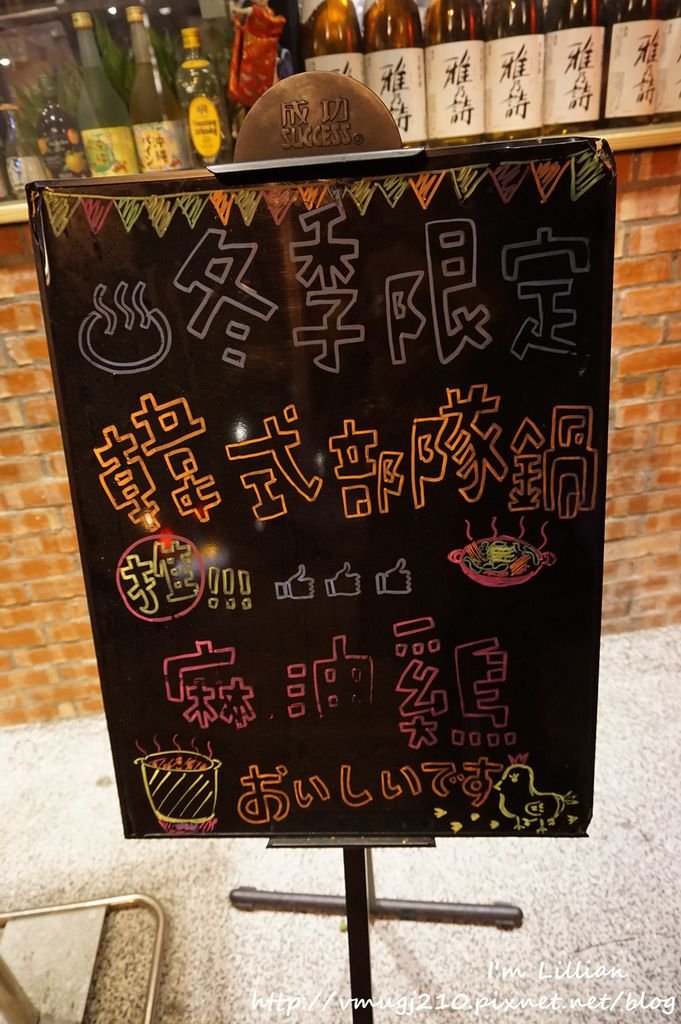 成功
SUCCESS®
雅乃詩 雅乃詩 雅乃詩 雅乃詩 雅乃詩
冬季限定
韓式部隊鍋
推!!!
麻油雞
おいしいです
I'm Lillian
http://vmugj210.pixnet.net/blog